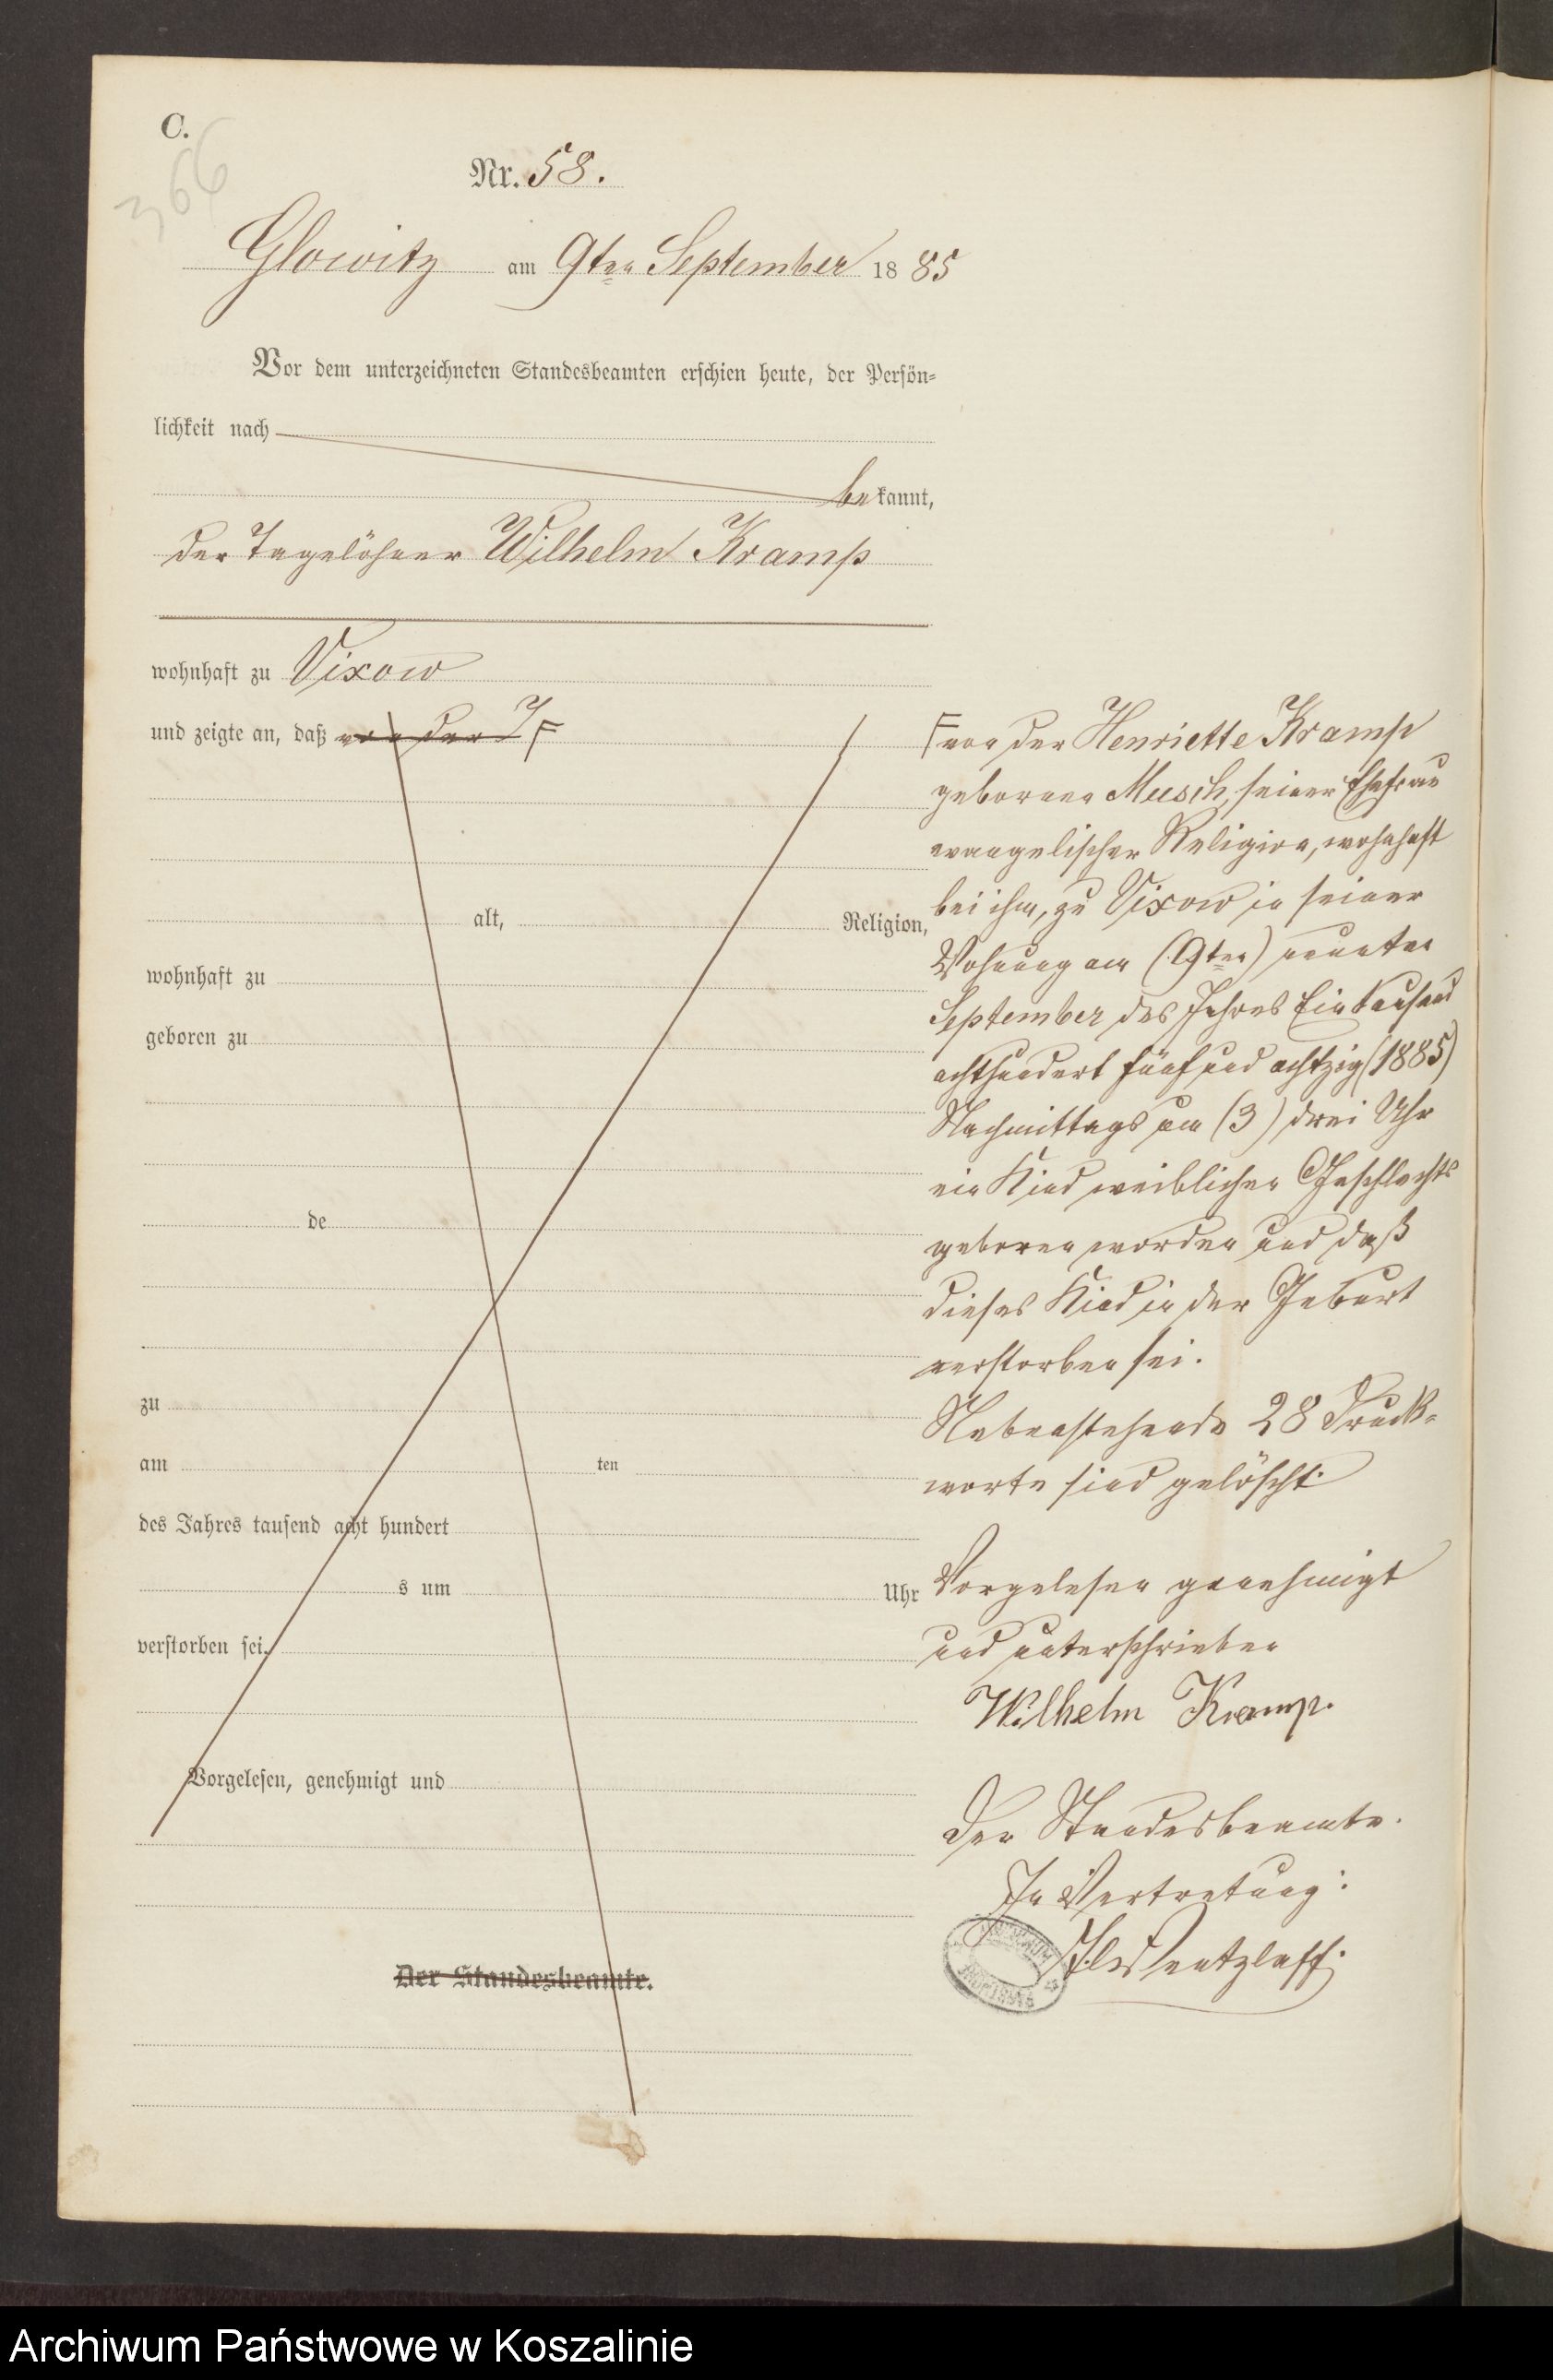 C.
366
Nr. 58.
Glowitz am 9ten September 1885
Vor dem unterzeichneten Standesbeamten erschien heute, der Persön-
lichkeit nach
bekannt,
der Tagelöhner Wilhelm Kramp
wohnhaft zu Vixow
und zeigte an, daß von der
alt, Religion,
wohnhaft zu
geboren zu
de
zu
am ten
des Jahres tausend acht hundert
s um Uhr
verstorben sei.
Vorgelesen, genehmigt und
Der Standesbeamte.
von der Henriette Kramp
geborenen Musch, seiner Ehefrau
evangelischer Religion, wohnhaft
bei ihm, zu Vixow in seiner
Wohnung am (9ten) neunten
September des Jahres Eintausend
achthundert fünf und achtzig (1885)
Nachmittags um (3) drei Uhr
ein Kind weiblichen Geschlechts
geboren worden und daß
dieses Kind in der Geburt
verstorben sei.
Nebenstehende 28 Druck-
worte sind gelöscht.
Vorgelesen genehmigt
und unterschrieben
Wilhelm Kramp.
Der Standesbeamte.
In Vertretung:
Archiwum Państwowe w Koszalinie